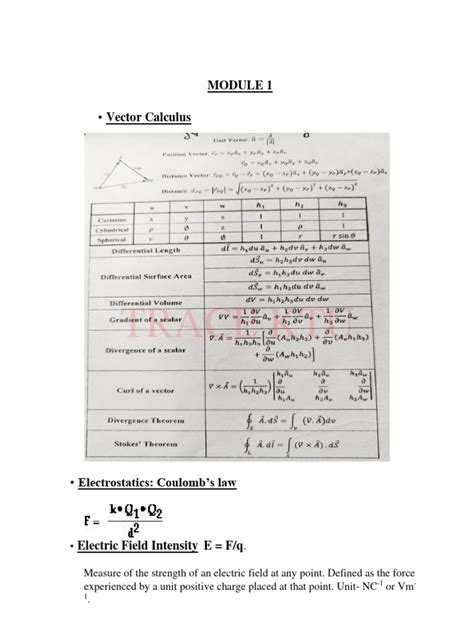 MODULE 1
• Vector Calculus
Unit Vector: â = Ā/|Ā|
Position Vector: r̄_P = x_P ā_x + y_P ā_y + z_P ā_z
r̄_Q = x_Q ā_x + y_Q ā_y + z_Q ā_z
Distance Vector: r̄_PQ = r̄_Q − r̄_P = (x_Q − x_P)ā_x + (y_Q − y_P)ā_y + (z_Q − z_P)ā_z
Distance d_PQ = |r̄_PQ| = √((x_Q − x_P)² + (y_Q − y_P)² + (z_Q − z_P)²)
u v w h₁ h₂ h₃
Cartesian x y z 1 1 1
Cylindrical ρ Ø z 1 ρ 1
Spherical r θ Ø 1 r r sin θ
Differential Length dl̄ = h₁du ā_u + h₂dv ā_v + h₃dw ā_w
dS̄_u = h₂h₃dv dw ā_u
Differential Surface Area dS̄_v = h₁h₃du dw ā_v
dS̄_w = h₁h₂du dv ā_w
Differential Volume dV = h₁h₂h₃du dv dw
Gradient of a scalar ∇V = 1/h₁ ∂V/∂u ā_u + 1/h₂ ∂V/∂v ā_v + 1/h₃ ∂V/∂w ā_w
Divergence of a scalar
∇. Ā = 1/(h₁h₂h₃) [∂/∂u (A_u h₂h₃) + ∂/∂v (A_v h₁h₃)
+ ∂/∂w (A_w h₁h₂)]
Curl of a vector ∇ × Ā = (1/(h₁h₂h₃)) | h₁ā_u h₂ā_v h₃ā_w |
∂/∂u ∂/∂v ∂/∂w
h₁A_u h₂A_v h₃A_w
Divergence Theorem ∮_S Ā. dS̄ = ∫_v (∇. Ā)dv
Stokes' Theorem ∮_L Ā. dl̄ = ∫_S (∇ × Ā). dS̄
• Electrostatics: Coulomb's law
F = k•Q₁•Q₂ / d²
• Electric Field Intensity E = F/q.
Measure of the strength of an electric field at any point. Defined as the force
experienced by a unit positive charge placed at that point. Unit- NC⁻¹ or Vm⁻
¹.